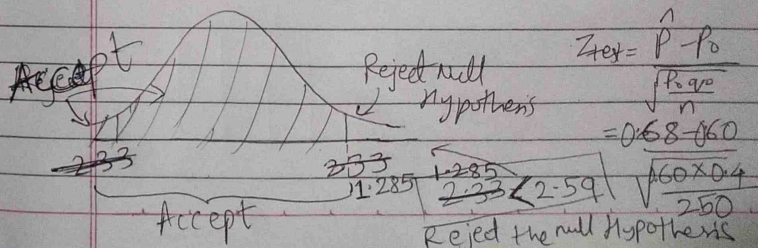 Accept
Reject null
Hypothesis
Ztest = p̂ - p₀
√p₀q₀
n
= 0.68-060
√.60×0.4
250
-2.33
2.33
1.285
1.285
2.33 < 2.59
Accept
Reject the null Hypothesis